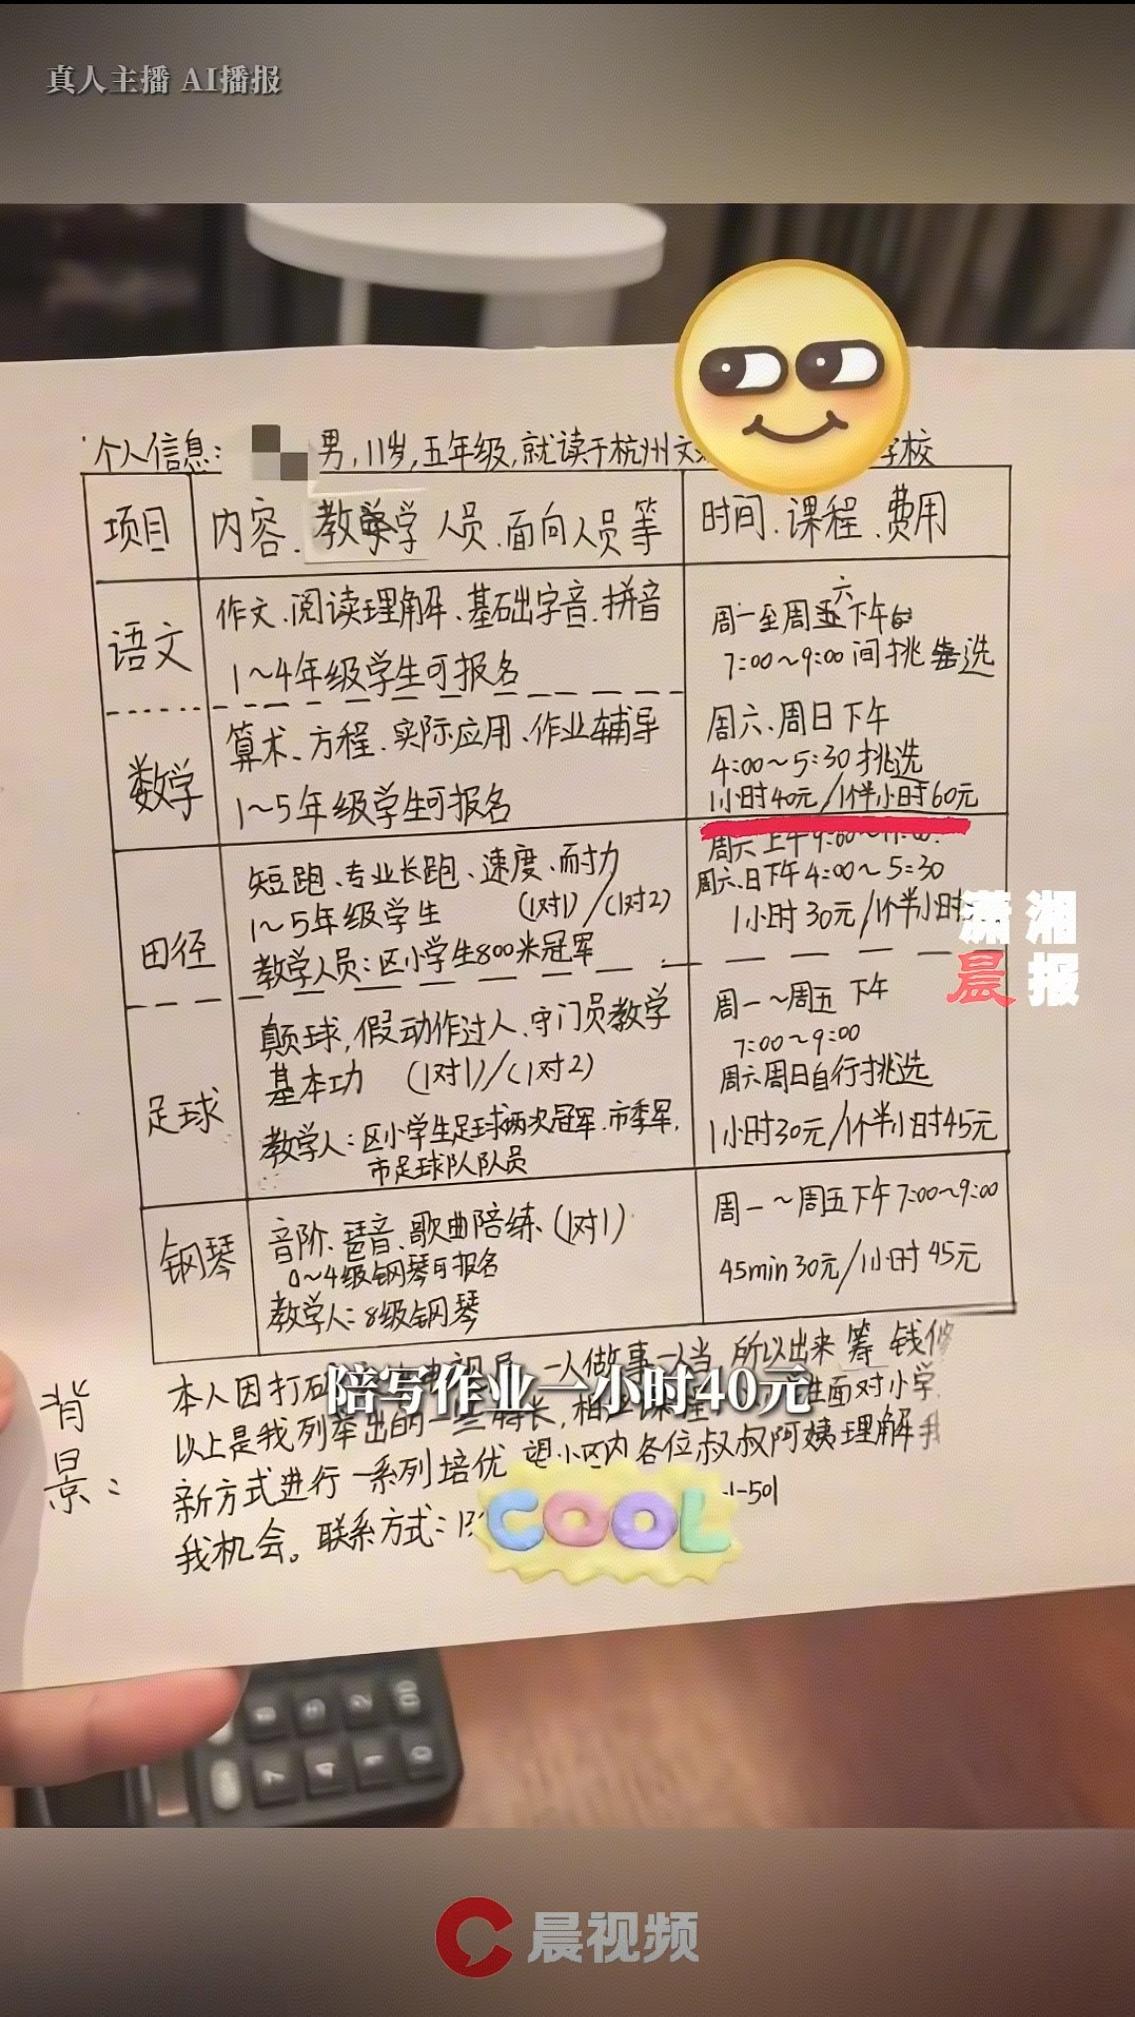 真人主播 AI播报
个人信息: 男,11岁,五年级,就读于杭州文 学校
项目
内容、教学 人员、面向人员等
时间、课程、费用
语文
作文、阅读理解、基础字音、拼音
1~4年级学生可报名
周一至周六下午
7:00~9:00间挑选
数学
算术、方程、实际应用、作业辅导
1~5年级学生可报名
周六、周日下午
4:00~5:30挑选
1小时40元/1个半小时60元
田径
短跑、专业长跑、速度、耐力
1~5年级学生 (1对1)/(1对2)
教学人员:区小学生800米冠军
周六上午9:00~11:00
周六、日下午4:00~5:30
1小时30元/1个半小时
潇湘
晨报
足球
颠球,假动作过人、守门员教学
基本功 (1对1)/(1对2)
教学人:区小学生足球两次冠军、市季军,
市足球队队员
周一~周五 下午
7:00~9:00
周六周日自行挑选
1小时30元/1个半小时45元
钢琴
音阶、琶音、歌曲陪练(1对1)
0~4级钢琴可报名
教学人:8级钢琴
周一~周五下午7:00~9:00
45min30元/1小时45元
背景:
本人因打 一人做事一人当 所以出来筹钱
陪写作业一小时40元
以上是我列举出的一些特长, 面对小学
新方式进行一系列培优 望小区内各位叔叔阿姨理解我
我机会。联系方式:13 -1-501
COOL
晨视频